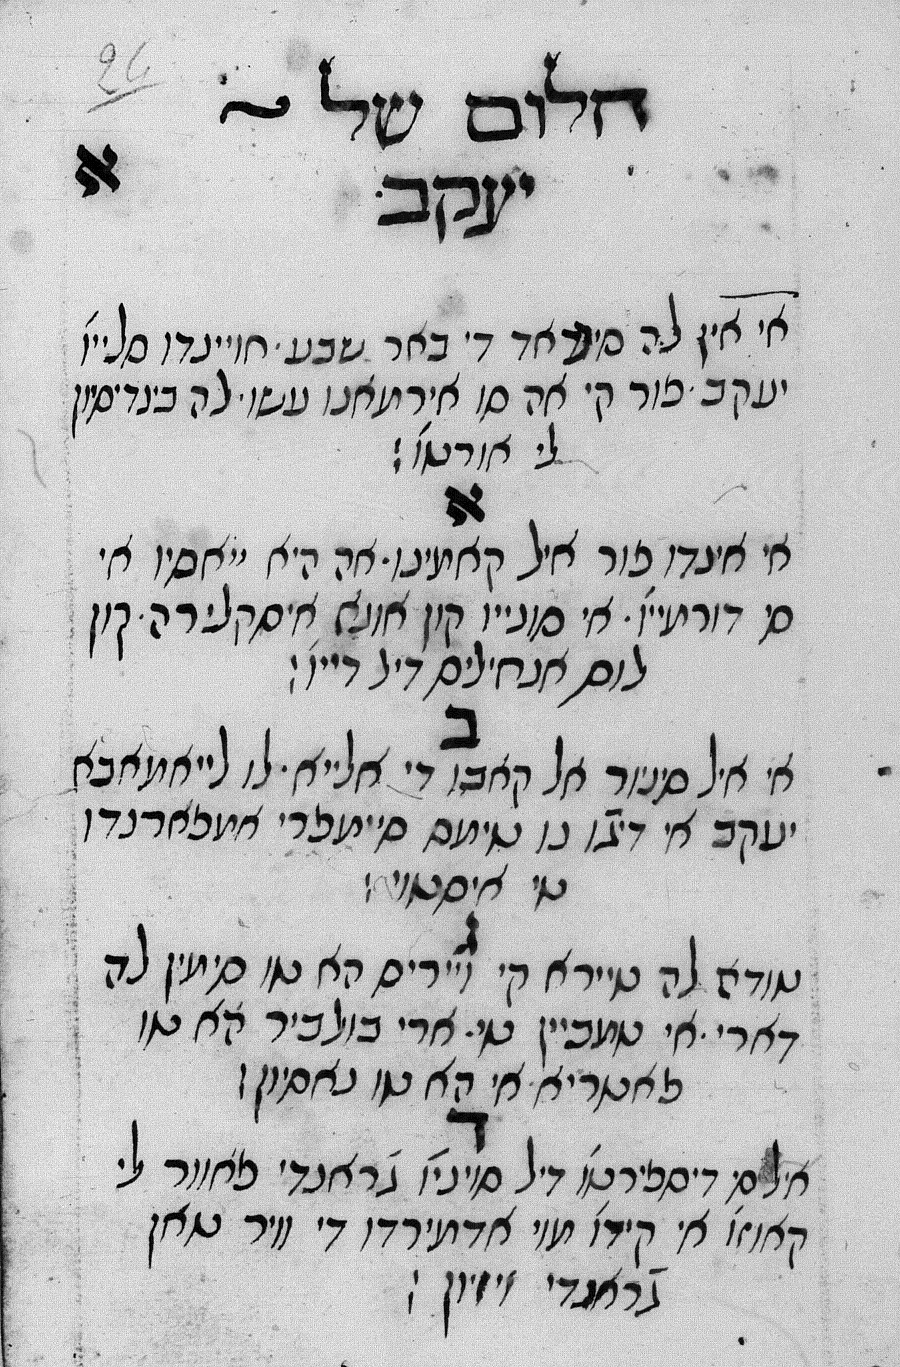 26
חלום של
א
יעקב
אי אין לה מיטאד די באר שבע חויינדו סלייו
יעקב פור קי אה סו אירמאנו עשו לה בינדיסיון
לי אורטו
א
אי אינדו פור איל קאמינו אה היא ייאסיו אי
סי דורמייו אי סונייו קון אונא איסקלירה קון
לוס אנחיליס דיל דייו
ב
אי איל סיניור אל קאבו די אלייא לו לייאמאבא
יעקב אי דישו נו טימס סיימפרי אמפארנדו
טי איסטוי
ג
טודה לה טיירא קי וייריס הא טו סימין לה
דארי אי טמביין טי ארי בולביר הא טו
פאטריא אי הא טו נאסיון
ד
אילסי דיספירטו דיל סויניו גראנדי פאוור לי
קאוזו אי קידו מוי אדמירדו די וויר טאן
גראנדי ויזיון